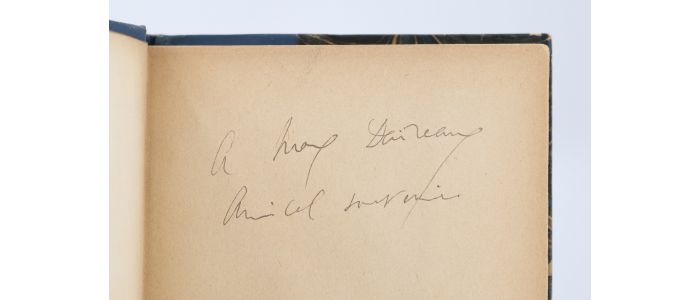 A Max Daireaux
Amical souvenir